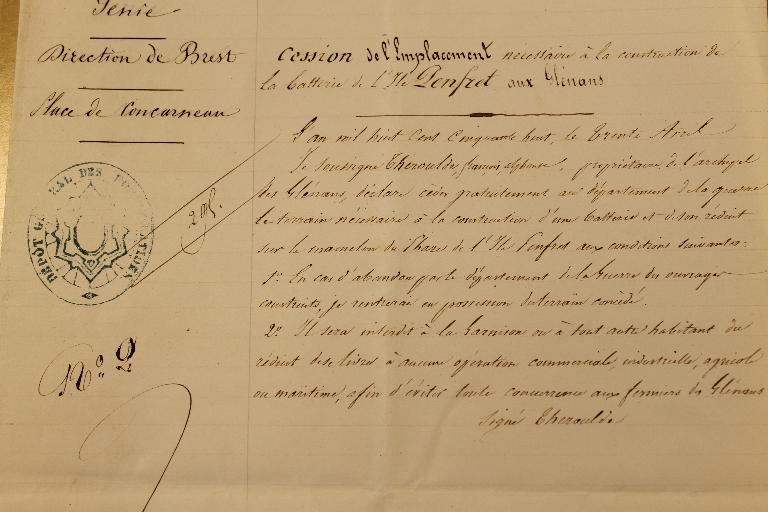 Génie
Direction de Brest
Place de Concarneau
DÉPÔT GÉNÉRAL DES FORTIFICATIONS
N.° 2
Cession de l'Emplacement nécessaire à la construction de
la batterie de l'Ile Penfret aux Glénans
L'an mil huit cent cinquante huit, le trente Avril
Je soussigné Théroulde, françois, alphonse, propriétaire de l'archipel
des Glénans, déclare céder gratuitement au département de la guerre
le terrain nécessaire à la construction d'une batterie et de son réduit
sur le mamelon du Phare de l'Ile Penfret aux conditions suivantes:
1° En cas d'abandon par le département de la Guerre des ouvrages
construits, je rentrerai en possession du terrain concédé.
2° Il sera interdit à la Garnison ou à tout autre habitant du
réduit de se livrer à aucune opération commerciale, industrielle, agricole
ou maritime, afin d'éviter toute concurrence aux fermiers des Glénans
Signé Théroulde